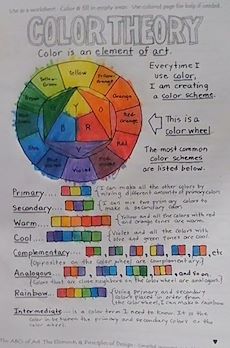 Use as a worksheet - Color & fill in empty areas. Use colored page for help if needed.
COLOR THEORY
Color is an element of art.
Everytime I
use color,
I am creating
a color scheme.
Yellow
Yellow-
Green
Orange
Green
Red-
Orange
Red
Violet
Y
B
R
This is a
color wheel
The most common
color schemes
are listed below.
Primary....
I can make all the other colors by
mixing different amounts of primary colors.
Secondary....
I can mix two primary colors to
make a secondary color.
Warm....
Yellow and all the colors with red
and orange tones are warm.
Cool....
Violet and all the colors with
blue and green tones are cool.
Complementary.... , etc
(Opposites on the color wheel are complementary.)
Analogous.... and so on.
(Colors that are close neighbors on the color wheel are analogous.)
Rainbow....
Using primary and secondary
colors placed in order from
the color wheel, I can make a rainbow.
Intermediate is a color term I need to know. It is the
color in between the primary and secondary colors on the
color wheel.
The ABCs of Art: The Elements & Principles of Design